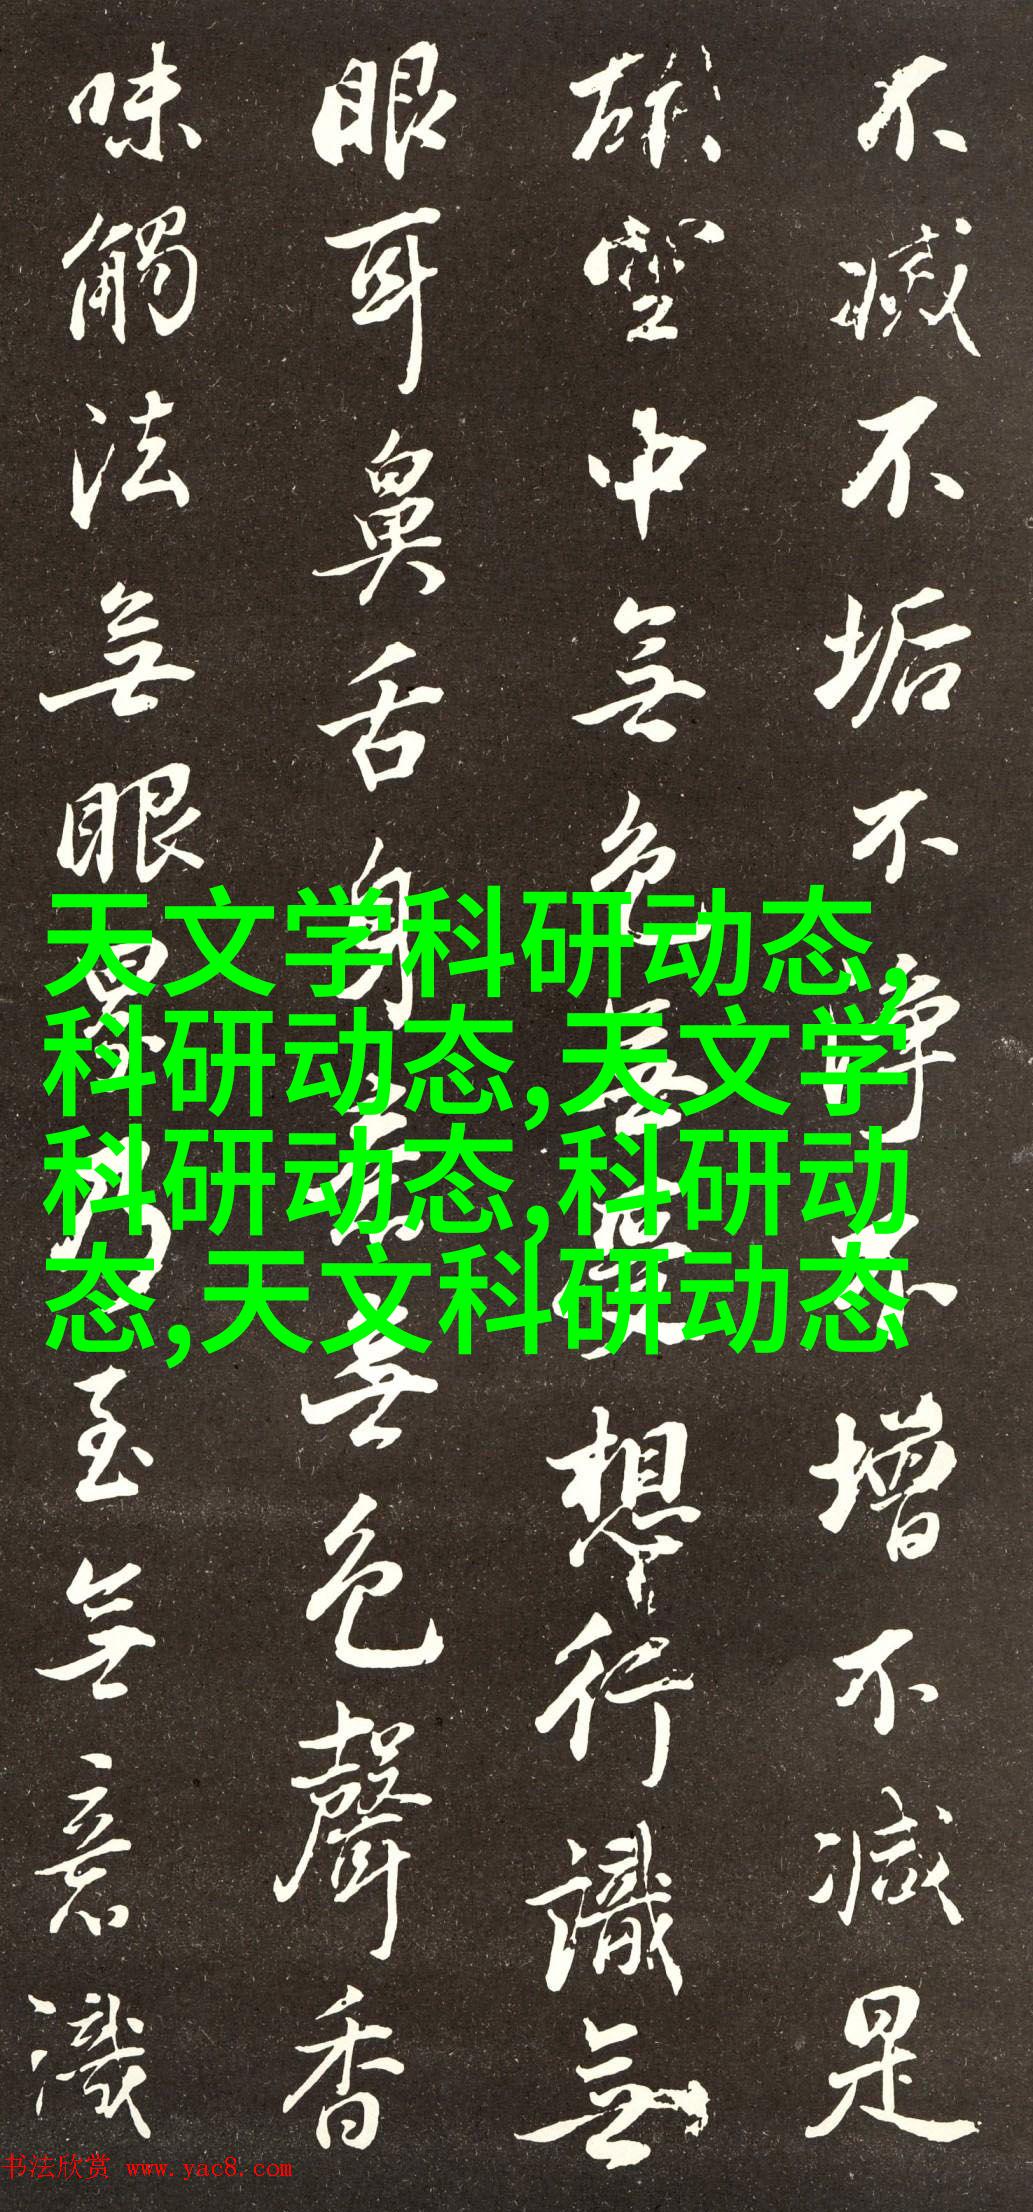 不滅不垢不淨不增不減是
故空中無色無受想行識無
眼耳鼻舌身意無色聲香
味觸法無眼界乃至無意識
天文学科研动态,
科研动态,天文学
科研动态,科研动
态,天文科研动态
书法欣赏 www.yac8.com